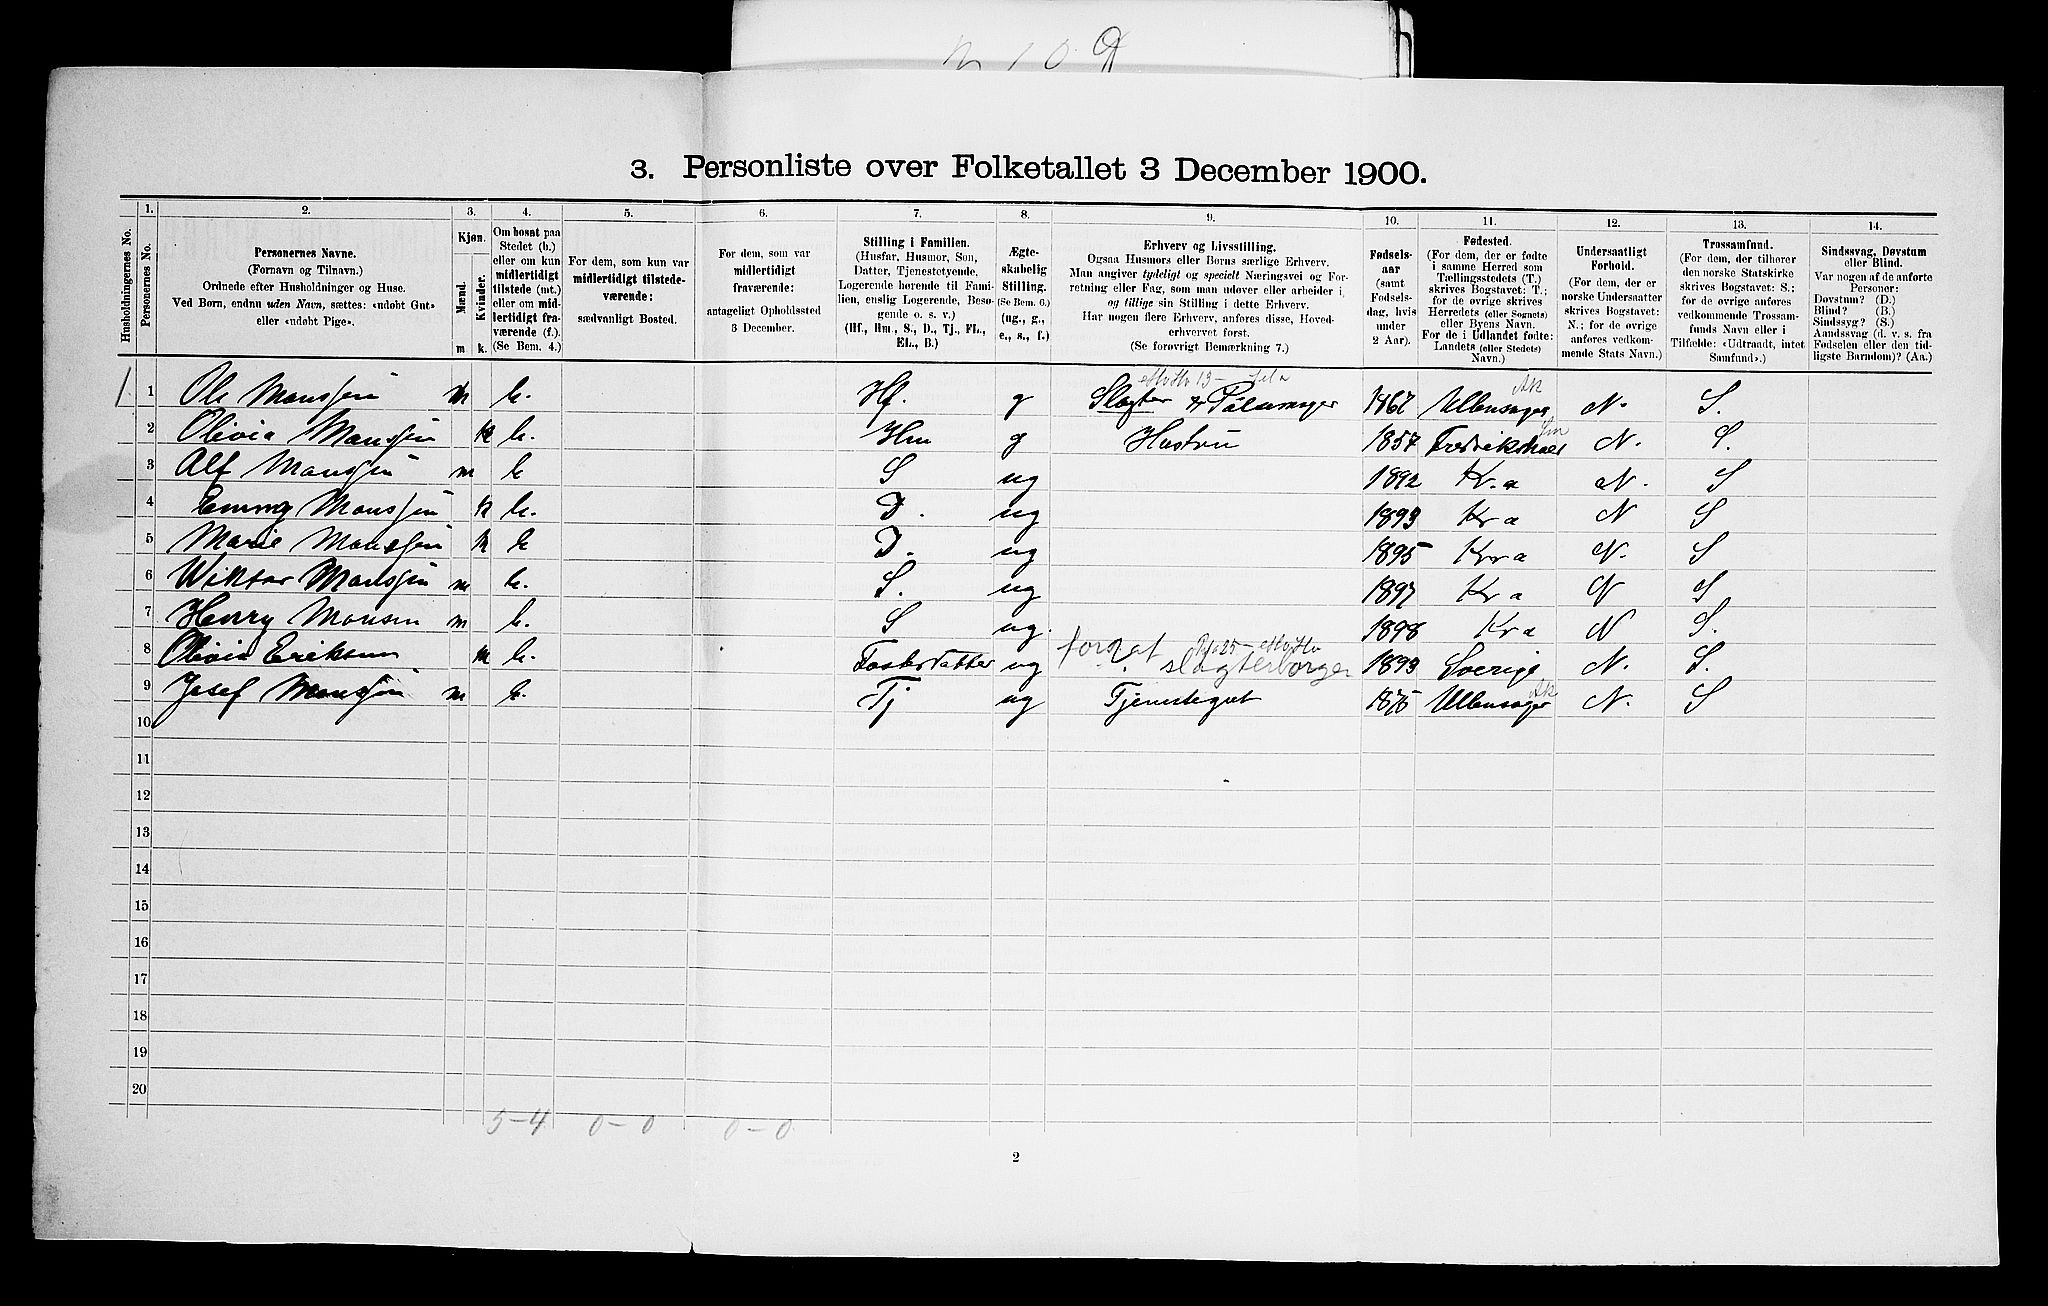 N 10
3. Personliste over Folketallet 3 December 1900.
Husholdningernes No.
1. Personernes No.
2. Personernes Navne. (Fornavn og Tilnavn.) Ordnede efter Husholdninger og Huse. Ved Børn, endnu uden Navn, sættes: «udøbt Gut» eller «udøbt Pige».
3. Kjøn. Mænd. Kvinder. m k.
4. Om bosat paa Stedet (b.) eller om kun midlertidigt tilstede (mt.) eller om midlertidigt fraværende (f.). (Se Bem. 4.)
5. For dem, som kun var midlertidigt tilstedeværende: sædvanligt Bosted.
6. For dem, som var midlertidigt fraværende: antageligt Opholdssted 3 December.
7. Stilling i Familien. (Husfar, Husmor, Søn, Datter, Tjenestetyende, Logerende hørende til Familien, enslig Logerende, Besøgende o. s. v.) (Hf., Hm., S., D., Tj., FL., EL., B.)
8. Ægteskabelig Stilling. (Se Bem. 6.) (ug., g., e., s., f.)
9. Erhverv og Livsstilling. Ogsaa Husmors eller Børns særlige Erhverv. Man angiver tydeligt og specielt Næringsvei og Forretning eller Fag, som man udøver eller arbeider i, og tillige sin Stilling i dette Erhverv. Har nogen flere Erhverv, anføres disse, Hovederhvervet først. (Se forøvrigt Bemærkning 7.)
10. Fødselsaar (samt Fødselsdag, hvis under 2 Aar).
11. Fødested. (For dem, der er fødte i samme Herred som Tællingsstedets (T.) skrives Bogstavet: T.; for de øvrige skrives Herredets (eller Sognets) eller Byens Navn. For de i Udlandet fødte: Landets (eller Stedets) Navn.)
12. Undersaatligt Forhold. (For dem, der er norske Undersaatter skrives Bogstavet: N.; for de øvrige anføres vedkommende Stats Navn.)
13. Trossamfund. (For dem, der tilhører den norske Statskirke skrives Bogstavet: S.; for de øvrige anføres vedkommende Trossamfunds Navn eller i Tilfælde: «Udtraadt, intet Samfund».)
14. Sindssvag, Døvstum eller Blind. Var nogen af de anførte Personer: Døvstum? (D.) Blind? (B.) Sindssyg? (S.) Aandssvag (d. v. s. fra Fødselen eller den tidligste Barndom)? (Aa.)
1 1 Ole Monssen m b. Hf. g Slagter & Pølsemager 1867 Ullensager Ak N. S.
2 Olivia Monssen k b. Hm g Hustru 1857 Fredrikshald Sm N. S.
3 Alf Monssen m b S ug 1892 Kr.a N. S
4 Emmy Monssen k b. D. ug 1893 Kra N S
5 Marie Monssen k b D. ug 1895 Kra N. S
6 Wiktor Monssen m b. S. ug 1897 Kra N S
7 Henry Monsen m b. S ug. 1898 Kra N S.
8 Olivia Eriksen k b. Fosterdatter ug forsørget af slagterborger 1893 Sverige N. S.
9 Josef Monssen m b. Tj ug Tjenestegut 1875 Ullensager Ak N. S
10
11
12
13
14
15
16
17
18
19
20
5-4 0-0 0-0
2